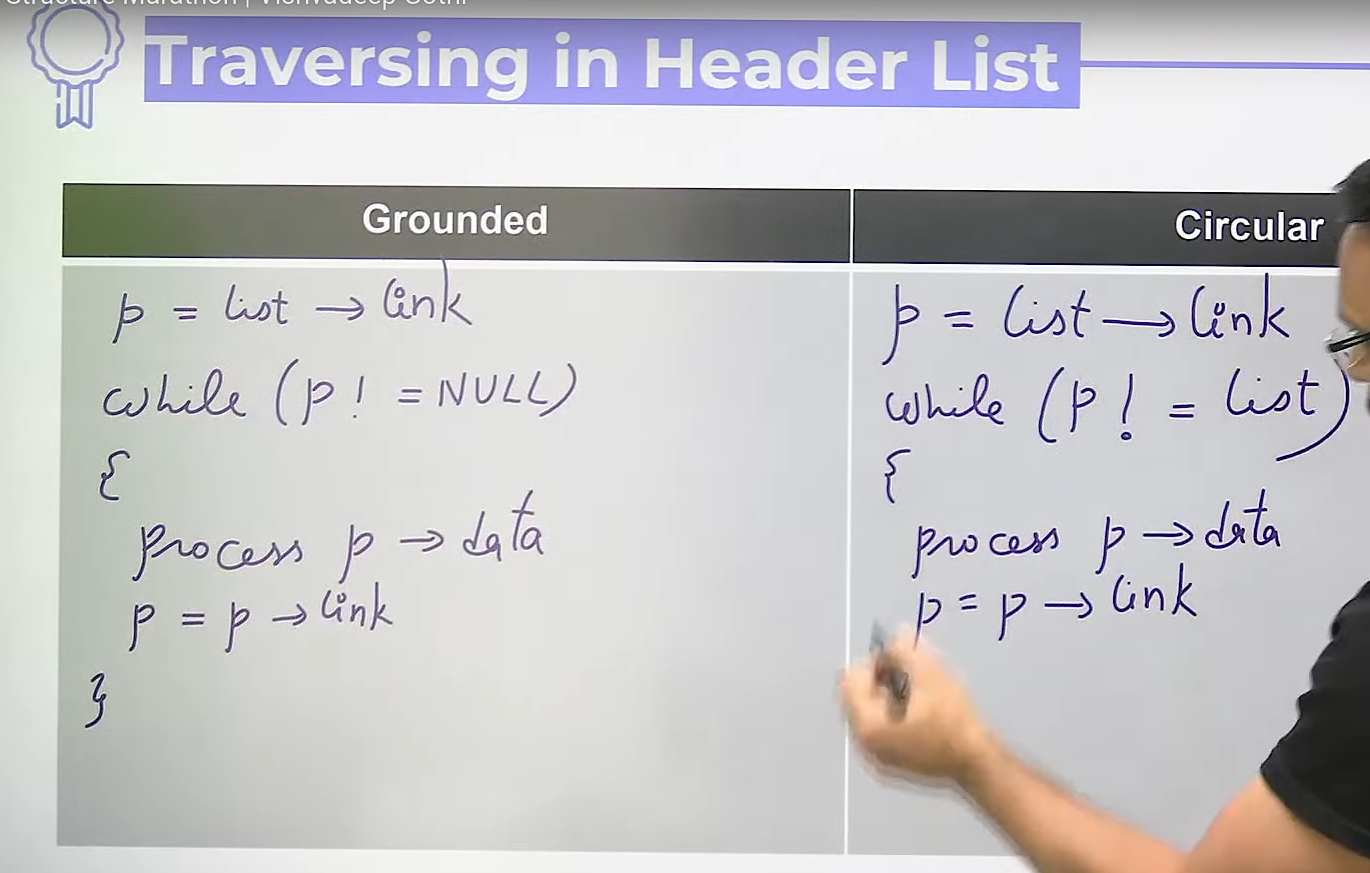 Structure Marathon | Vishvadeep Gothi
Traversing in Header List
Grounded
p = list → link
while (p! = NULL)
{
process p → data
p = p → link
}
Circular
p = list → link
while (p! = list)
{
process p → data
p = p → link